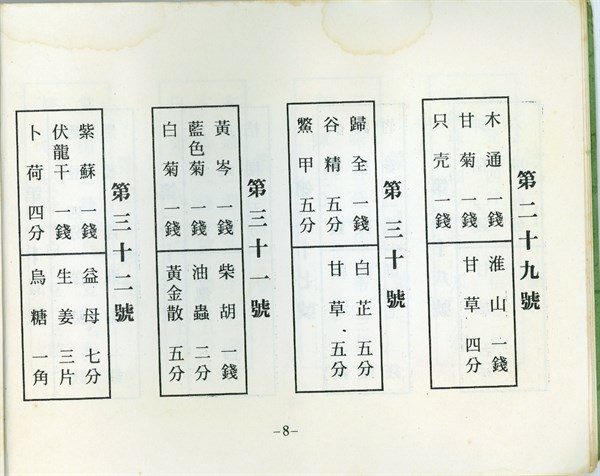 第二十九號
木通 一錢
甘菊 一錢
只壳 一錢
淮山 一錢
甘草 四分
第三十號
歸全 一錢
谷精 五分
鱉甲 五分
白芷 五分
甘草．五分
第三十一號
黃岑 一錢
藍色菊 一錢
白菊 一錢
柴胡 一錢
油蟲 二分
黃金散 五分
第三十二號
紫蘇 一錢
伏龍干 一錢
卜荷 四分
益母 七分
生姜 三片
烏糖 一角
-8-